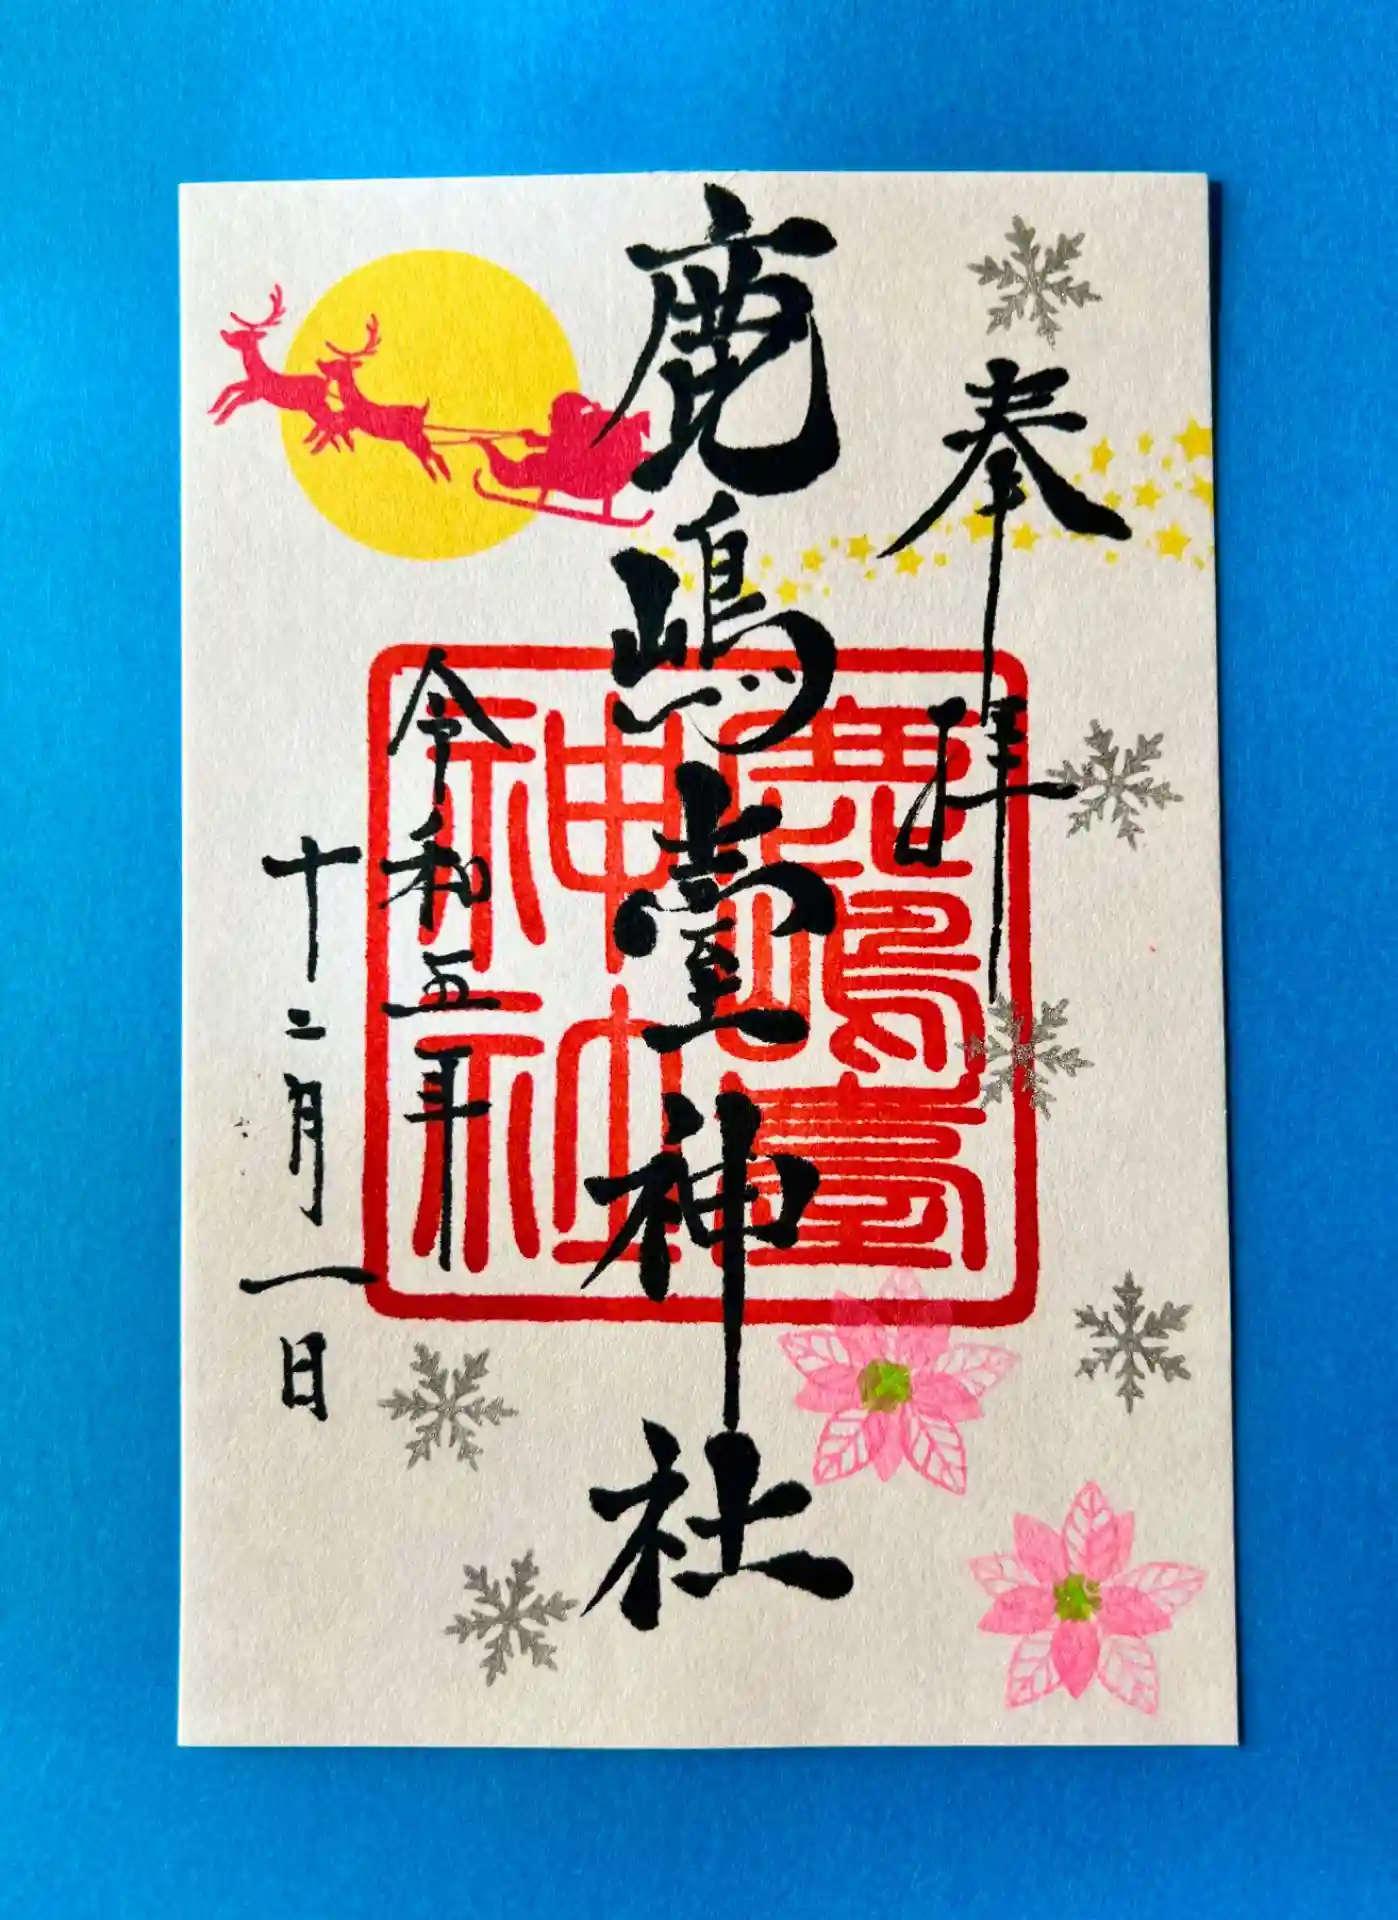 奉拝
鹿嶋臺神社
令和五年
十二月一日
鹿嶋臺
神社